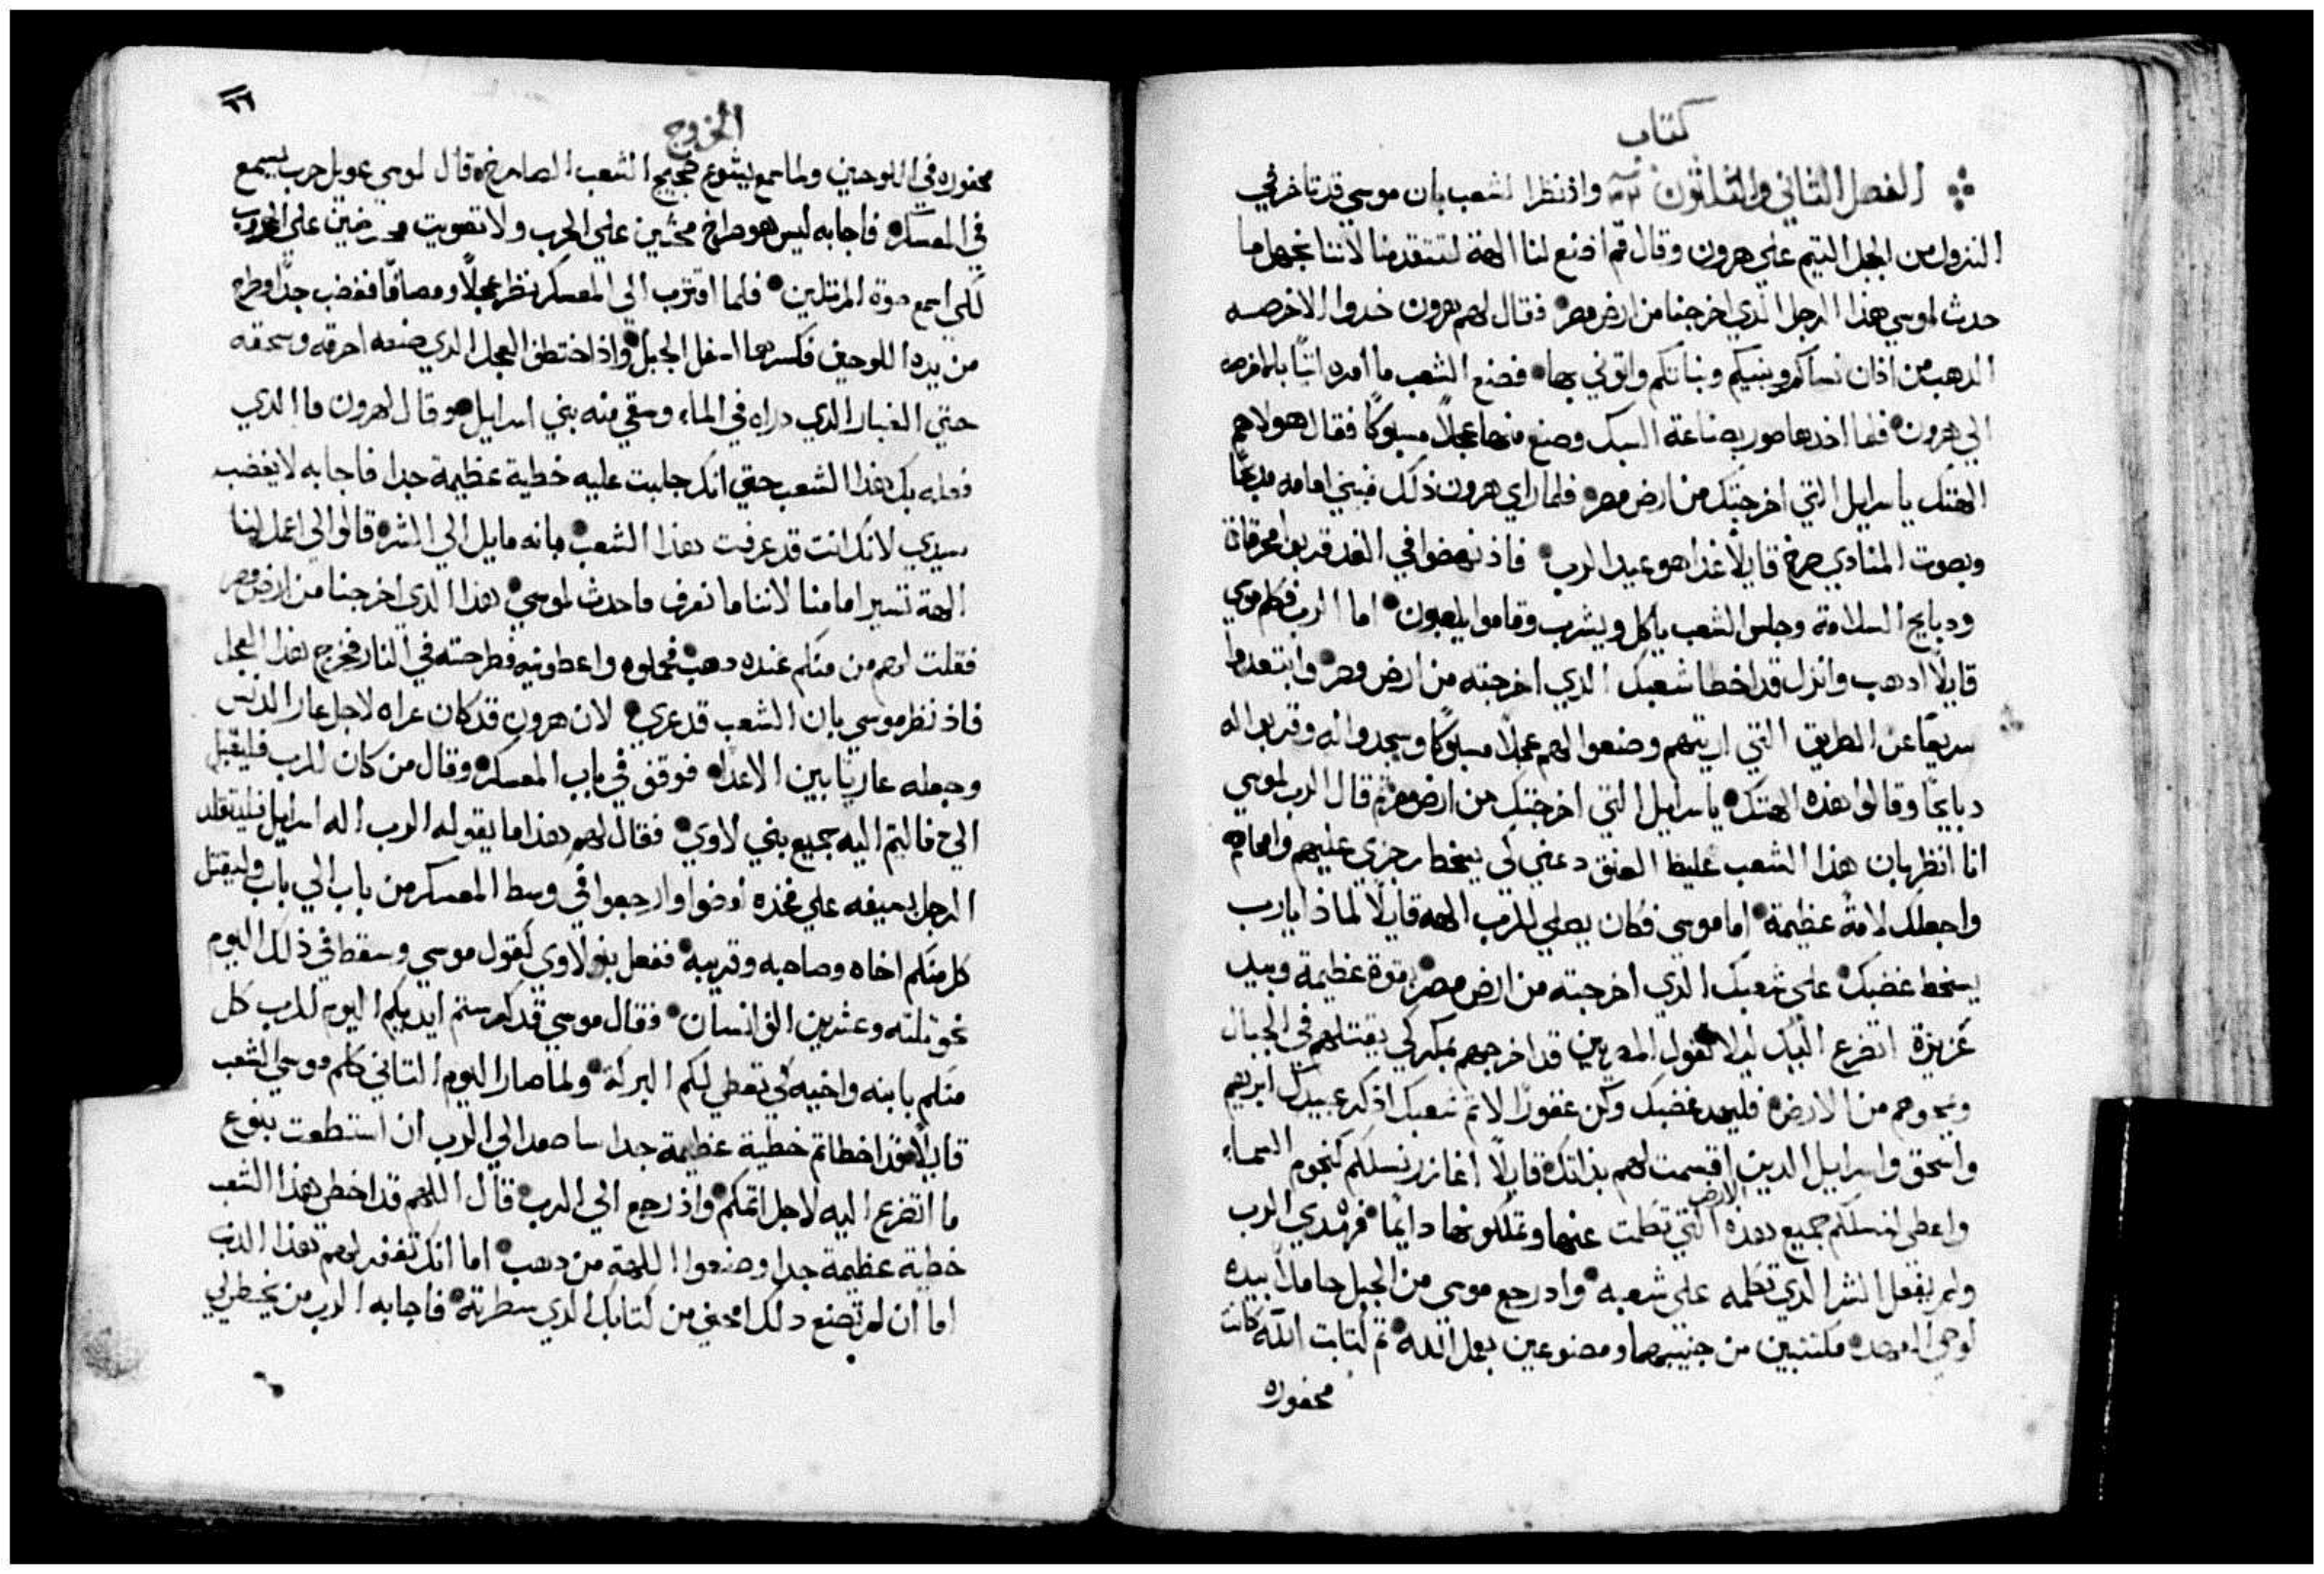 كتاب
الفصل الثاني والثلثون واذ نظر الشعب بان موسي قد تاخر في
النزول من الجبل التيم علي هرون وقال قم اصنع لنا الهة لتتقدمنا لاننا نجهل ما
حدث لموسي هذا الرجل الذي اخرجنا من ارض مصر فقال لهم هرون خدوا الاخرصه
الدهب من اذان نساكم وبنيكم وبناتكم واتوني بها فصنع الشعب ما امره اتيًا بالاخرصه
الي هرون فلما اخدها صور بصناعة السبك وصنع منها عجلًا مسبوكًا فقال هولا هم
الهتك ياسرايل التي اخرجتك من ارض مصر فلما راي هرون ذلك فبني امامه مدبحًا
وبصوت المنادي صرخ قايلًا غدا هو عيد الرب فاذ نهضوا في الغد قربوا محرقات
ودبايح السلامة وجلس الشعب ياكل ويشرب وقاموا يلعبون اما الرب فكلم موسي
قايلًا ادهب وانزل قد اخطا شعبك الدي اخرجته من ارض مصر وابتعدوا
سريعًا عن الطريق التي اريتهم وصنعوا لهم عجلًا مسبوكًا وسجدوا له وقربوا له
دبايحًا وقالوا هذه الهتك ياسرايل التي اخرجتك من ارض مصر ثم قال الرب لموسي
انا انظر بان هذا الشعب غليظ العنق دعني كي يسخط رجزي عليهم وامحاهم
واجعلك لامة عظيمة اما موسي فكان يصلي للرب الهه قايلًا لماذا يارب
يسخط غضبك علي شعبك الدي اخرجته من ارض مصر بقوة عظيمة وبيد
عزيزة اتضرع اليك ليلا تقول المصريين قد اخرجهم بمكر كي يقتلهم في الجبال
ويمحوهم من الارض فليهد غضبك وكن غفورًا لاثم شعبك اذكر عبيدك ابرهيم
واسحق واسرايل الدين اقسمت لهم بذاتك قايلًا اغازر نسلكم كنجوم السماء
واعطي لنسلكم جميع هذه الارض التي تكلمت عنها وتملكونها دايمًا فهدي الرب
ولم يفعل الشر الدي تكلمه علي شعبه واد رجع موسي من الجبل حاملًا بيده
لوحي العهد مكتبين من جنبيهما ومصنوعين بعمل الله ثم كتابت الله كانت
محفوره
٦٦
الخروج
محفوره في اللوحين ولما سمع يشوع ضجيج الشعب الصارخ قال لموسي عويل حرب يسمع
في المعسكر فاجابه ليس هو صراخ محثين علي الحرب ولا تصويت محرضين علي الهروب
لكي اسمع صوة المرتلين فلما اقترب الي المعسكر نظر عجلًا ومصافًا فغضب جدًا وطرح
من يده اللوحين فكسرهما اسفل الجبل واذ اختطف العجل الدي صنعه احرقه وسحقه
حتي الغبار الدي دراه في الماء وسقي منه بني اسرايل وقال لهرون ما الدي
فعله بك هذا الشعب حتي انك جلبت عليه خطية عظيمة جدا فاجابه لا يغضب
سيدي لانك انت قد عرفت هذا الشعب بانه مايل الي الشر قالوا لي اعمل لنا
الهة تسير امامنا لاننا ما نعرف ماحدث لموسي هذا الدي اخرجنا من ارض مصر
فقلت لهم من منكم عنده دهب فحملوه واعطونيه فطرحته في النار فخرج هذا العجل
فاذ نظر موسي بان الشعب قد عري لان هرون قد كان عراه لاجل عار الدنس
وجعله عاريًا بين الاعدا فوقف في باب المعسكر وقال من كان للرب فليقبل
الي فالتيم اليه جميع بني لاوي فقال لهم هذا ما يقوله الرب اله اسرايل فليتقلد
الرجل بسيفه علي فخذه امضوا وارجعوا في وسط المعسكر من باب الي باب وليقتل
كل منكم اخاه وصاحبه وقريبه ففعل بنو لاوي كقول موسي وسقط في ذلك اليوم
نحو ثلثه وعشرين الف انسان فقال موسي قد كرستم ايديكم اليوم للرب كل
منكم بابنه واخيه كي تعطي لكم البركة ولما صار اليوم التاني كلم موسي الشعب
قايلًا قد اخطاتم خطية عظيمة جدا ساصعد الي الرب ان استطعت بنوع
ما اتضرع اليه لاجل اثمكم واذ رجع الي الرب قال اللهم قد اخطي هذا الشعب
خطية عظيمة جدا وصنعوا اللهة من دهب اما انك تغفر لهم هذا الدنب
اما ان لم تصنع دلك امحني من كتابك الدي سطرته فاجابه الرب من يخطي لي